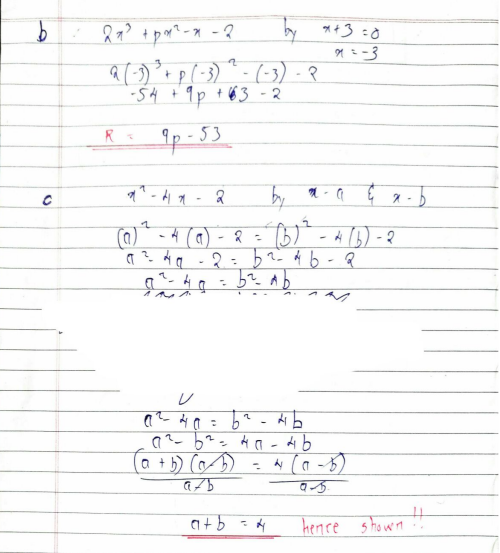 b 2x³ + px² - x - 2 by x+3 = 0
x = -3
2(-3)³ + p(-3)² - (-3) - 2
-54 + 9p + 3 - 2
R = 9p - 53
c x² - 4x - 2 by x - a & x - b
(a)² - 4(a) - 2 = (b)² - 4(b) - 2
a² - 4a - 2 = b² - 4b - 2
a² - 4a = b² - 4b
a² - 4a = b² - 4b
a² - b² = 4a - 4b
(a+b)(a-b) = 4(a-b)
a-b a-b
a+b = 4 hence shown!!